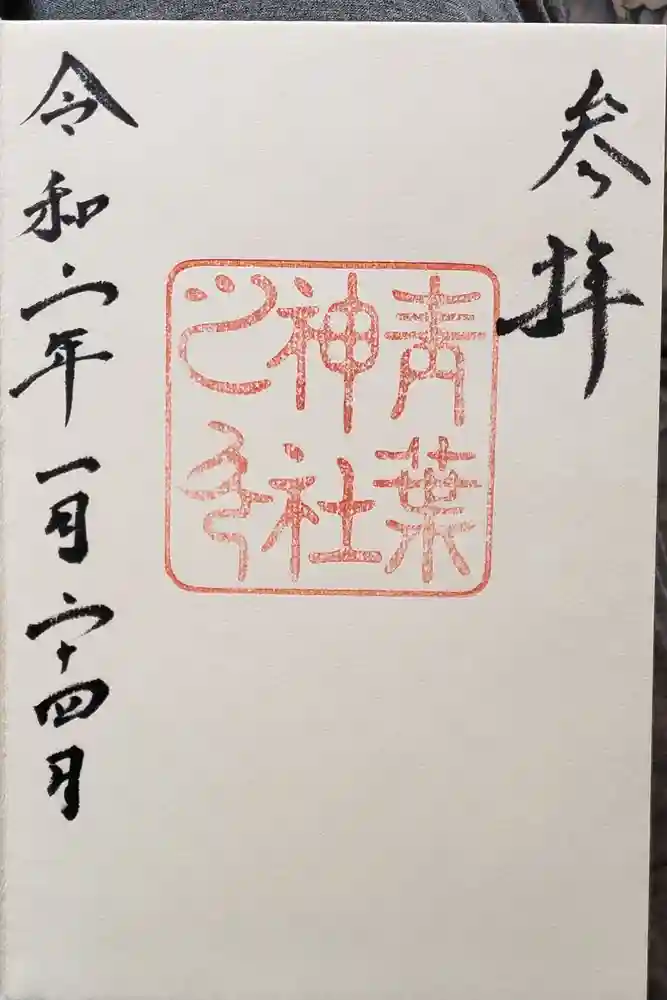 参拝
青葉
神社
之印
令和二年一月二十四日